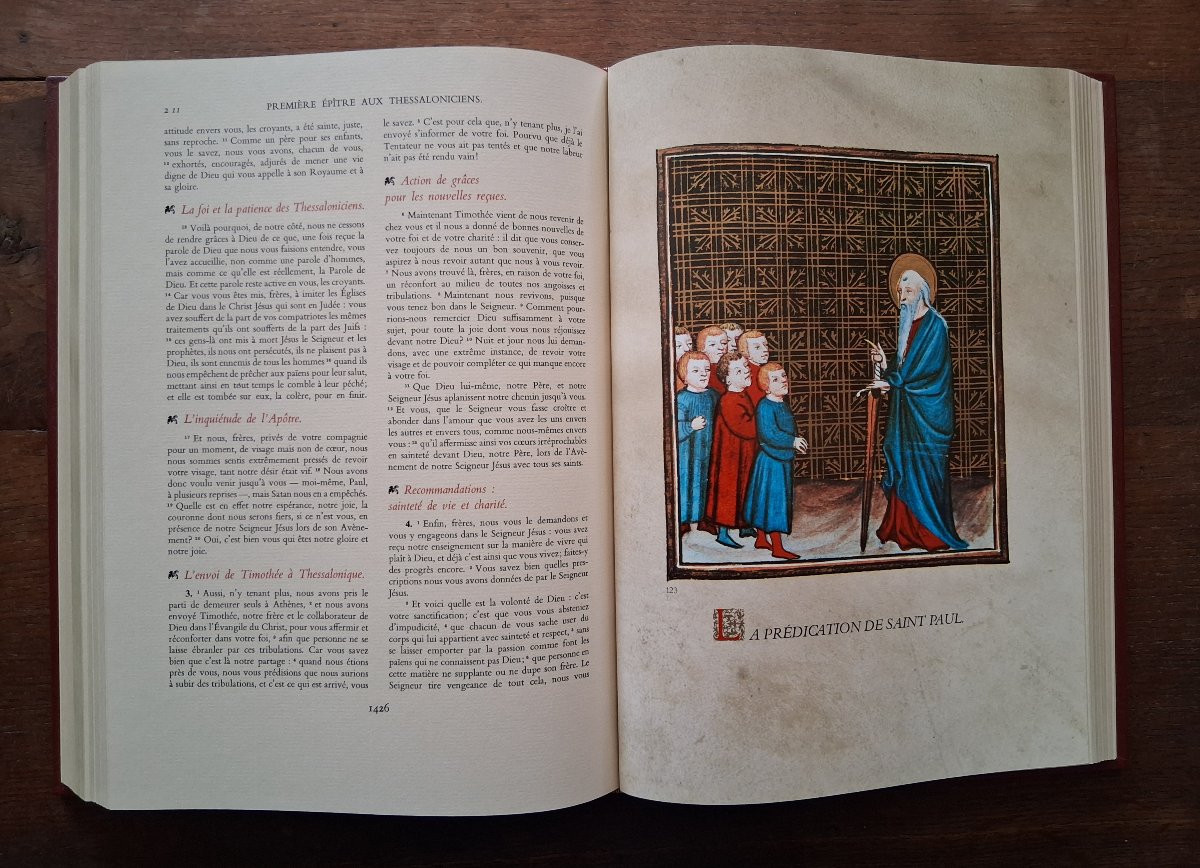 2 11
PREMIÈRE ÉPÎTRE AUX THESSALONICIENS.
attitude envers vous, les croyants, a été sainte, juste,
sans reproche. ¹¹ Comme un père pour ses enfants,
vous le savez, nous vous avons, chacun de vous,
¹² exhortés, encouragés, adjurés de mener une vie
digne de Dieu qui vous appelle à son Royaume et à
sa gloire.
La foi et la patience des Thessaloniciens.
¹³ Voilà pourquoi, de notre côté, nous ne cessons
de rendre grâces à Dieu de ce que, une fois reçue la
parole de Dieu que nous vous faisions entendre, vous
l'avez accueillie, non comme une parole d'hommes,
mais comme ce qu'elle est réellement, la Parole de
Dieu. Et cette parole reste active en vous, les croyants.
¹⁴ Car vous vous êtes mis, frères, à imiter les Églises
de Dieu dans le Christ Jésus qui sont en Judée : vous
avez souffert de la part de vos compatriotes les mêmes
traitements qu'ils ont soufferts de la part des Juifs :
¹⁵ ces gens-là ont mis à mort Jésus le Seigneur et les
prophètes, ils nous ont persécutés, ils ne plaisent pas à
Dieu, ils sont ennemis de tous les hommes ¹⁶ quand ils
nous empêchent de prêcher aux païens pour leur salut,
mettant ainsi en tout temps le comble à leur péché;
et elle est tombée sur eux, la colère, pour en finir.
L'inquiétude de l'Apôtre.
¹⁷ Et nous, frères, privés de votre compagnie
pour un moment, de visage mais non de cœur, nous
nous sommes sentis extrêmement pressés de revoir
votre visage, tant notre désir était vif. ¹⁸ Nous avons
donc voulu venir jusqu'à vous — moi-même, Paul,
à plusieurs reprises —, mais Satan nous en a empêchés.
¹⁹ Quelle est en effet notre espérance, notre joie, la
couronne dont nous serons fiers, si ce n'est vous, en
présence de notre Seigneur Jésus lors de son Avène-
ment? ²⁰ Oui, c'est bien vous qui êtes notre gloire et
notre joie.
L'envoi de Timothée à Thessalonique.
3. ¹ Aussi, n'y tenant plus, nous avons pris le
parti de demeurer seuls à Athènes, ² et nous avons
envoyé Timothée, notre frère et le collaborateur de
Dieu dans l'Évangile du Christ, pour vous affermir et
réconforter dans votre foi, ³ afin que personne ne se
laisse ébranler par ces tribulations. Car vous savez
bien que c'est là notre partage : ⁴ quand nous étions
près de vous, nous vous prédisions que nous aurions
à subir des tribulations, et c'est ce qui est arrivé, vous
le savez. ⁵ C'est pour cela que, n'y tenant plus, je l'ai
envoyé s'informer de votre foi. Pourvu que déjà le
Tentateur ne vous ait pas tentés et que notre labeur
n'ait pas été rendu vain!
Action de grâces
pour les nouvelles reçues.
⁶ Maintenant Timothée vient de nous revenir de
chez vous et il nous a donné de bonnes nouvelles de
votre foi et de votre charité : il dit que vous conser-
vez toujours de nous un bon souvenir, que vous
aspirez à nous revoir autant que nous à vous revoir.
⁷ Nous avons trouvé là, frères, en raison de votre foi,
un réconfort au milieu de toutes nos angoisses et
tribulations. ⁸ Maintenant nous revivons, puisque
vous tenez bon dans le Seigneur. ⁹ Comment pour-
rions-nous remercier Dieu suffisamment à votre
sujet, pour toute la joie dont vous nous réjouissez
devant notre Dieu? ¹⁰ Nuit et jour nous lui deman-
dons, avec une extrême instance, de revoir votre
visage et de pouvoir compléter ce qui manque encore
à votre foi.
¹¹ Que Dieu lui-même, notre Père, et notre
Seigneur Jésus aplanissent notre chemin jusqu'à vous.
¹² Et vous, que le Seigneur vous fasse croître et
abonder dans l'amour que vous avez les uns envers
les autres et envers tous, comme nous-mêmes envers
vous : ¹³ qu'il affermisse ainsi vos cœurs irréprochables
en sainteté devant Dieu, notre Père, lors de l'Avè-
nement de notre Seigneur Jésus avec tous ses saints.
Recommandations :
sainteté de vie et charité.
4. ¹ Enfin, frères, nous vous le demandons et
vous y engageons dans le Seigneur Jésus : vous avez
reçu notre enseignement sur la manière de vivre qui
plaît à Dieu, et déjà c'est ainsi que vous vivez; faites-y
des progrès encore. ² Vous savez bien quelles pres-
criptions nous vous avons données de par le Seigneur
Jésus.
³ Et voici quelle est la volonté de Dieu : c'est
votre sanctification; c'est que vous vous absteniez
d'impudicité, ⁴ que chacun de vous sache user du
corps qui lui appartient avec sainteté et respect, ⁵ sans
se laisser emporter par la passion comme font les
païens qui ne connaissent pas Dieu; ⁶ que personne en
cette matière ne supplante ou ne dupe son frère. Le
Seigneur tire vengeance de tout cela, nous vous
1426
123
LA PRÉDICATION DE SAINT PAUL.